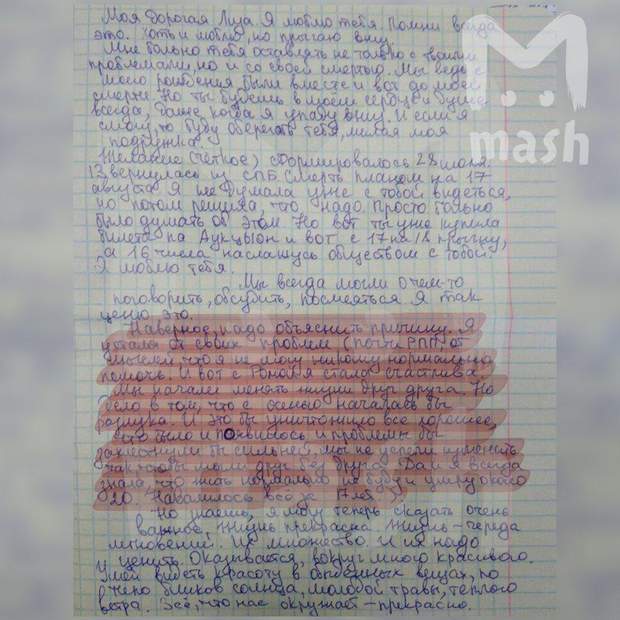 Моя дорогая Лиза. Я люблю тебя. Помни всегда
это. Хоть и люблю, но прыгаю вниз.
Мне больно тебя оставлять не только с твоими
проблемами, но и со своей смертью. Мы ведь с
моего рождения были вместе и вот до моей
смерти. Но ты будешь в моём сердце и буде
всегда, даже когда я упаду вниз. И если я
смогу, то буду оберегать тебя, милая моя
подружка
mash
Желание (чёткое) сформировалось 28 июля.
13 вернулась из СПб. Смерть планом на 17
августа. Я не думала уже с тобой видеться,
но потом решила, что надо. Просто больно
было думать об этом. Но вот ты уже купила
билеты на Аукцыон и вот с 17 на 18 прыгну,
а 16 числа наслажусь обществом с тобой.
Я люблю тебя.
Мы всегда могли о чем-то
поговорить, обсудить, посмеяться. Я так
ценю это.
Наверное, надо объяснить причину. Я
устала от своих проблем (почти РПП), от
мыслей, что я не могу никому нормально
помочь. И вот с Ромой я стала счастлива.
Мы начали менять жизни друг друга. Но
дело в том, что с осенью началась бы
разлука. И это бы уничтожило все хорошее,
что было и появилось, и проблемы бы
захлестнули бы сильней, мы не успели изменить
так чтобы могли друг без друга. Да и я всегда
знала, что жить нормально не буду и умру около
20. Навалилось всё за 17 лет
Но знаешь, я могу теперь сказать очень
важное, жизнь прекрасна. Жизнь - череда
мгновений. Их множество. И их надо
ценить. Оказывается, вокруг много красивого.
Умей видеть красоту в обыденных вещах, по
бликов солнца, молодой травы, тёплого
ветра. Всё, что нас окружает - прекрасно.